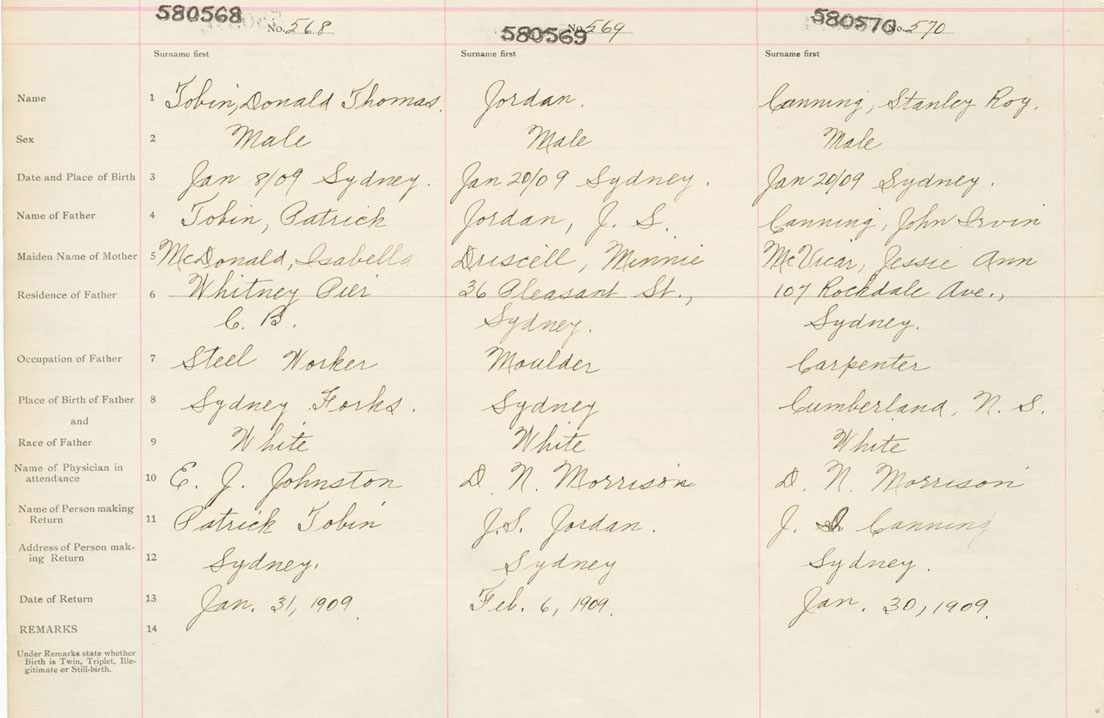 580568 No. 568 580569 No. 569 580570 No. 570
Surname first Surname first Surname first
Name 1 Tobin, Donald Thomas. Jordan. Canning, Stanley Roy.
Sex 2 Male Male Male
Date and Place of Birth 3 Jan 8/09 Sydney. Jan 20/09 Sydney. Jan 20/09 Sydney.
Name of Father 4 Tobin, Patrick Jordan, J. S. Canning, John Irvin
Maiden Name of Mother 5 McDonald, Isabella Driscell, Minnie McVicar, Jessie Ann
Residence of Father 6 Whitney Pier 36 Pleasant St., 107 Rockdale Ave.,
C. B. Sydney. Sydney.
Occupation of Father 7 Steel Worker Moulder Carpenter
Place of Birth of Father 8 Sydney Forks. Sydney Cumberland, N. S.
and
Race of Father 9 White White White
Name of Physician in
attendance 10 E. J. Johnston D. N. Morrison D. N. Morrison
Name of Person making
Return 11 Patrick Tobin J. S. Jordan. J. I. Canning
Address of Person mak-
ing Return 12 Sydney. Sydney Sydney.
Date of Return 13 Jan. 31, 1909. Feb. 6, 1909. Jan. 30, 1909.
REMARKS 14
Under Remarks state whether
Birth is Twin, Triplet, Ille-
gitimate or Still-birth.